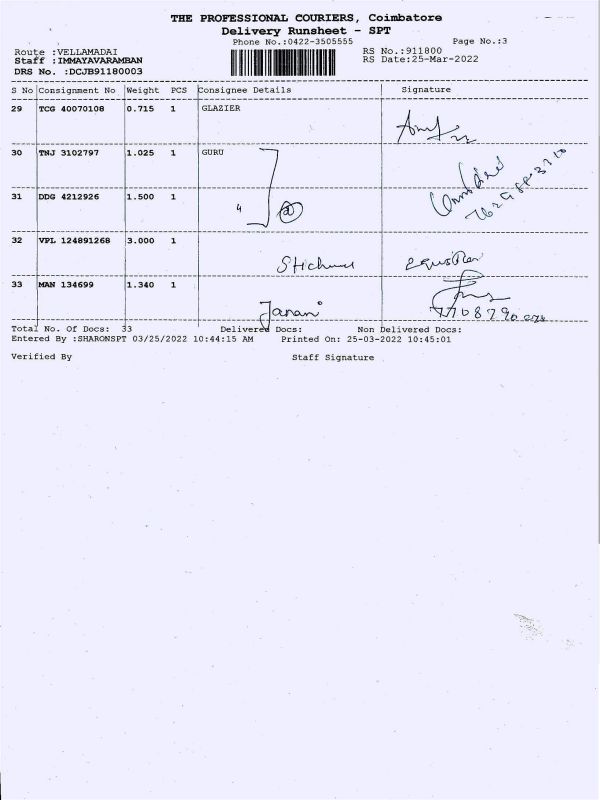 THE PROFESSIONAL COURIERS, Coimbatore
Delivery Runsheet - SPT
Phone No.:0422-3505555 Page No.:3
Route :VELLAMADAI RS No.:911800
Staff :IMMAYAVARAMBAN RS Date:25-Mar-2022
DRS No. :DCJB91180003
S No Consignment No Weight PCS Consignee Details Signature
29 TCG 40070108 0.715 1 GLAZIER
30 TNJ 3102797 1.025 1 GURU
31 DDG 4212926 1.500 1 " 2
32 VPL 124891268 3.000 1
33 MAN 134699 1.340 1
Janani
Total No. Of Docs: 33 Delivered Docs: Non Delivered Docs:
Entered By :SHARONSPT 03/25/2022 10:44:15 AM Printed On: 25-03-2022 10:45:01
Verified By Staff Signature